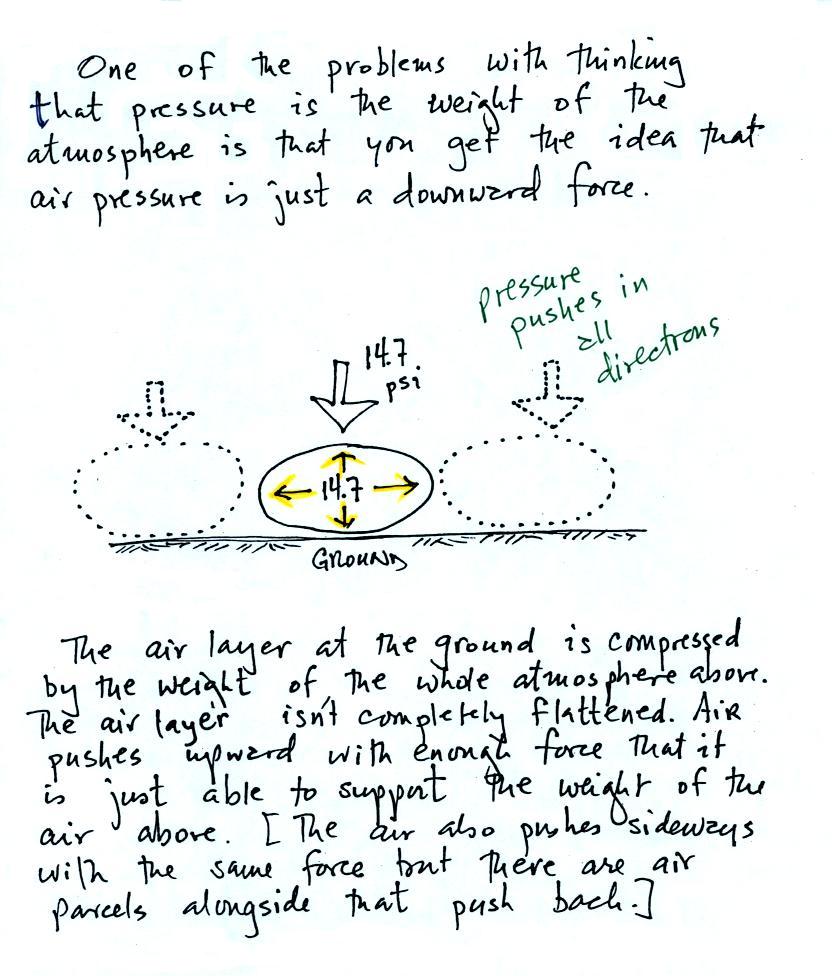 One of the problems with thinking
that pressure is the weight of the
atmosphere is that you get the idea that
air pressure is just a downward force.
pressure
pushes in
all
directions
14.7
psi
14.7
GROUND
The air layer at the ground is compressed
by the weight of the whole atmosphere above.
The air layer isn't completely flattened. AIR
pushes upward with enough force that it
is just able to support the weight of the
air above. [The air also pushes sideways
with the same force but there are air
parcels alongside that push back.]